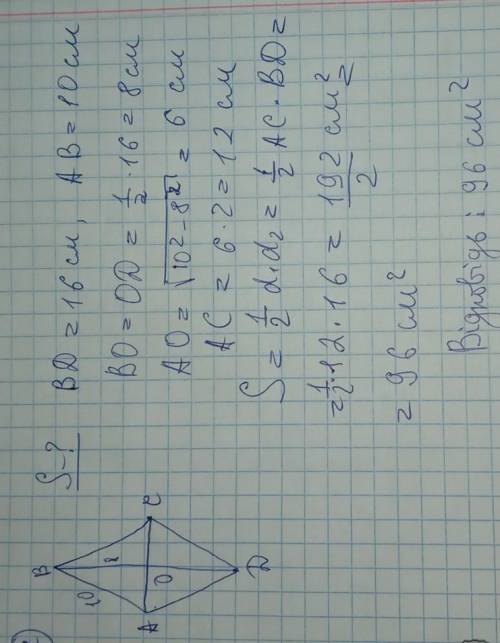 S-?
BD = 16 см, AB = 10 см
BO = OD = 1/2 · 16 = 8 см
AO = √10² - 8² = 6 см
AC = 6 · 2 = 12 см
S = 1/2 d₁d₂ = 1/2 AC · BD =
= 1/2 · 12 · 16 = 192/2 см² =
= 96 см²
Відповідь: 96 см²
B
10
8
A
O
C
D